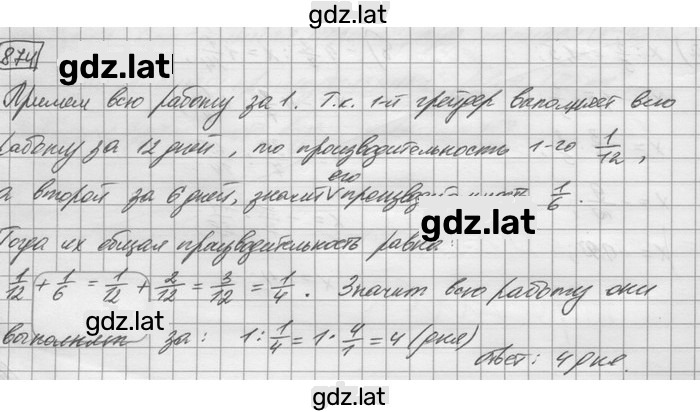 gdz.lat
874
gdz.lat
Примем всю работу за 1. Т.к. 1-й грейдер выполняет всю
работу за 12 дней, то производительность 1-го 1/12,
а второй за 6 дней, значит его 1/6.
gdz.lat
Тогда их общая производительность равна:
1/12 + 1/6 = 1/12 + 2/12 = 3/12 = 1/4. Значит всю работу они
gdz.lat
выполнят за: 1 : 1/4 = 1 · 4/1 = 4 (дня)
Ответ: 4 дня.
gdz.lat